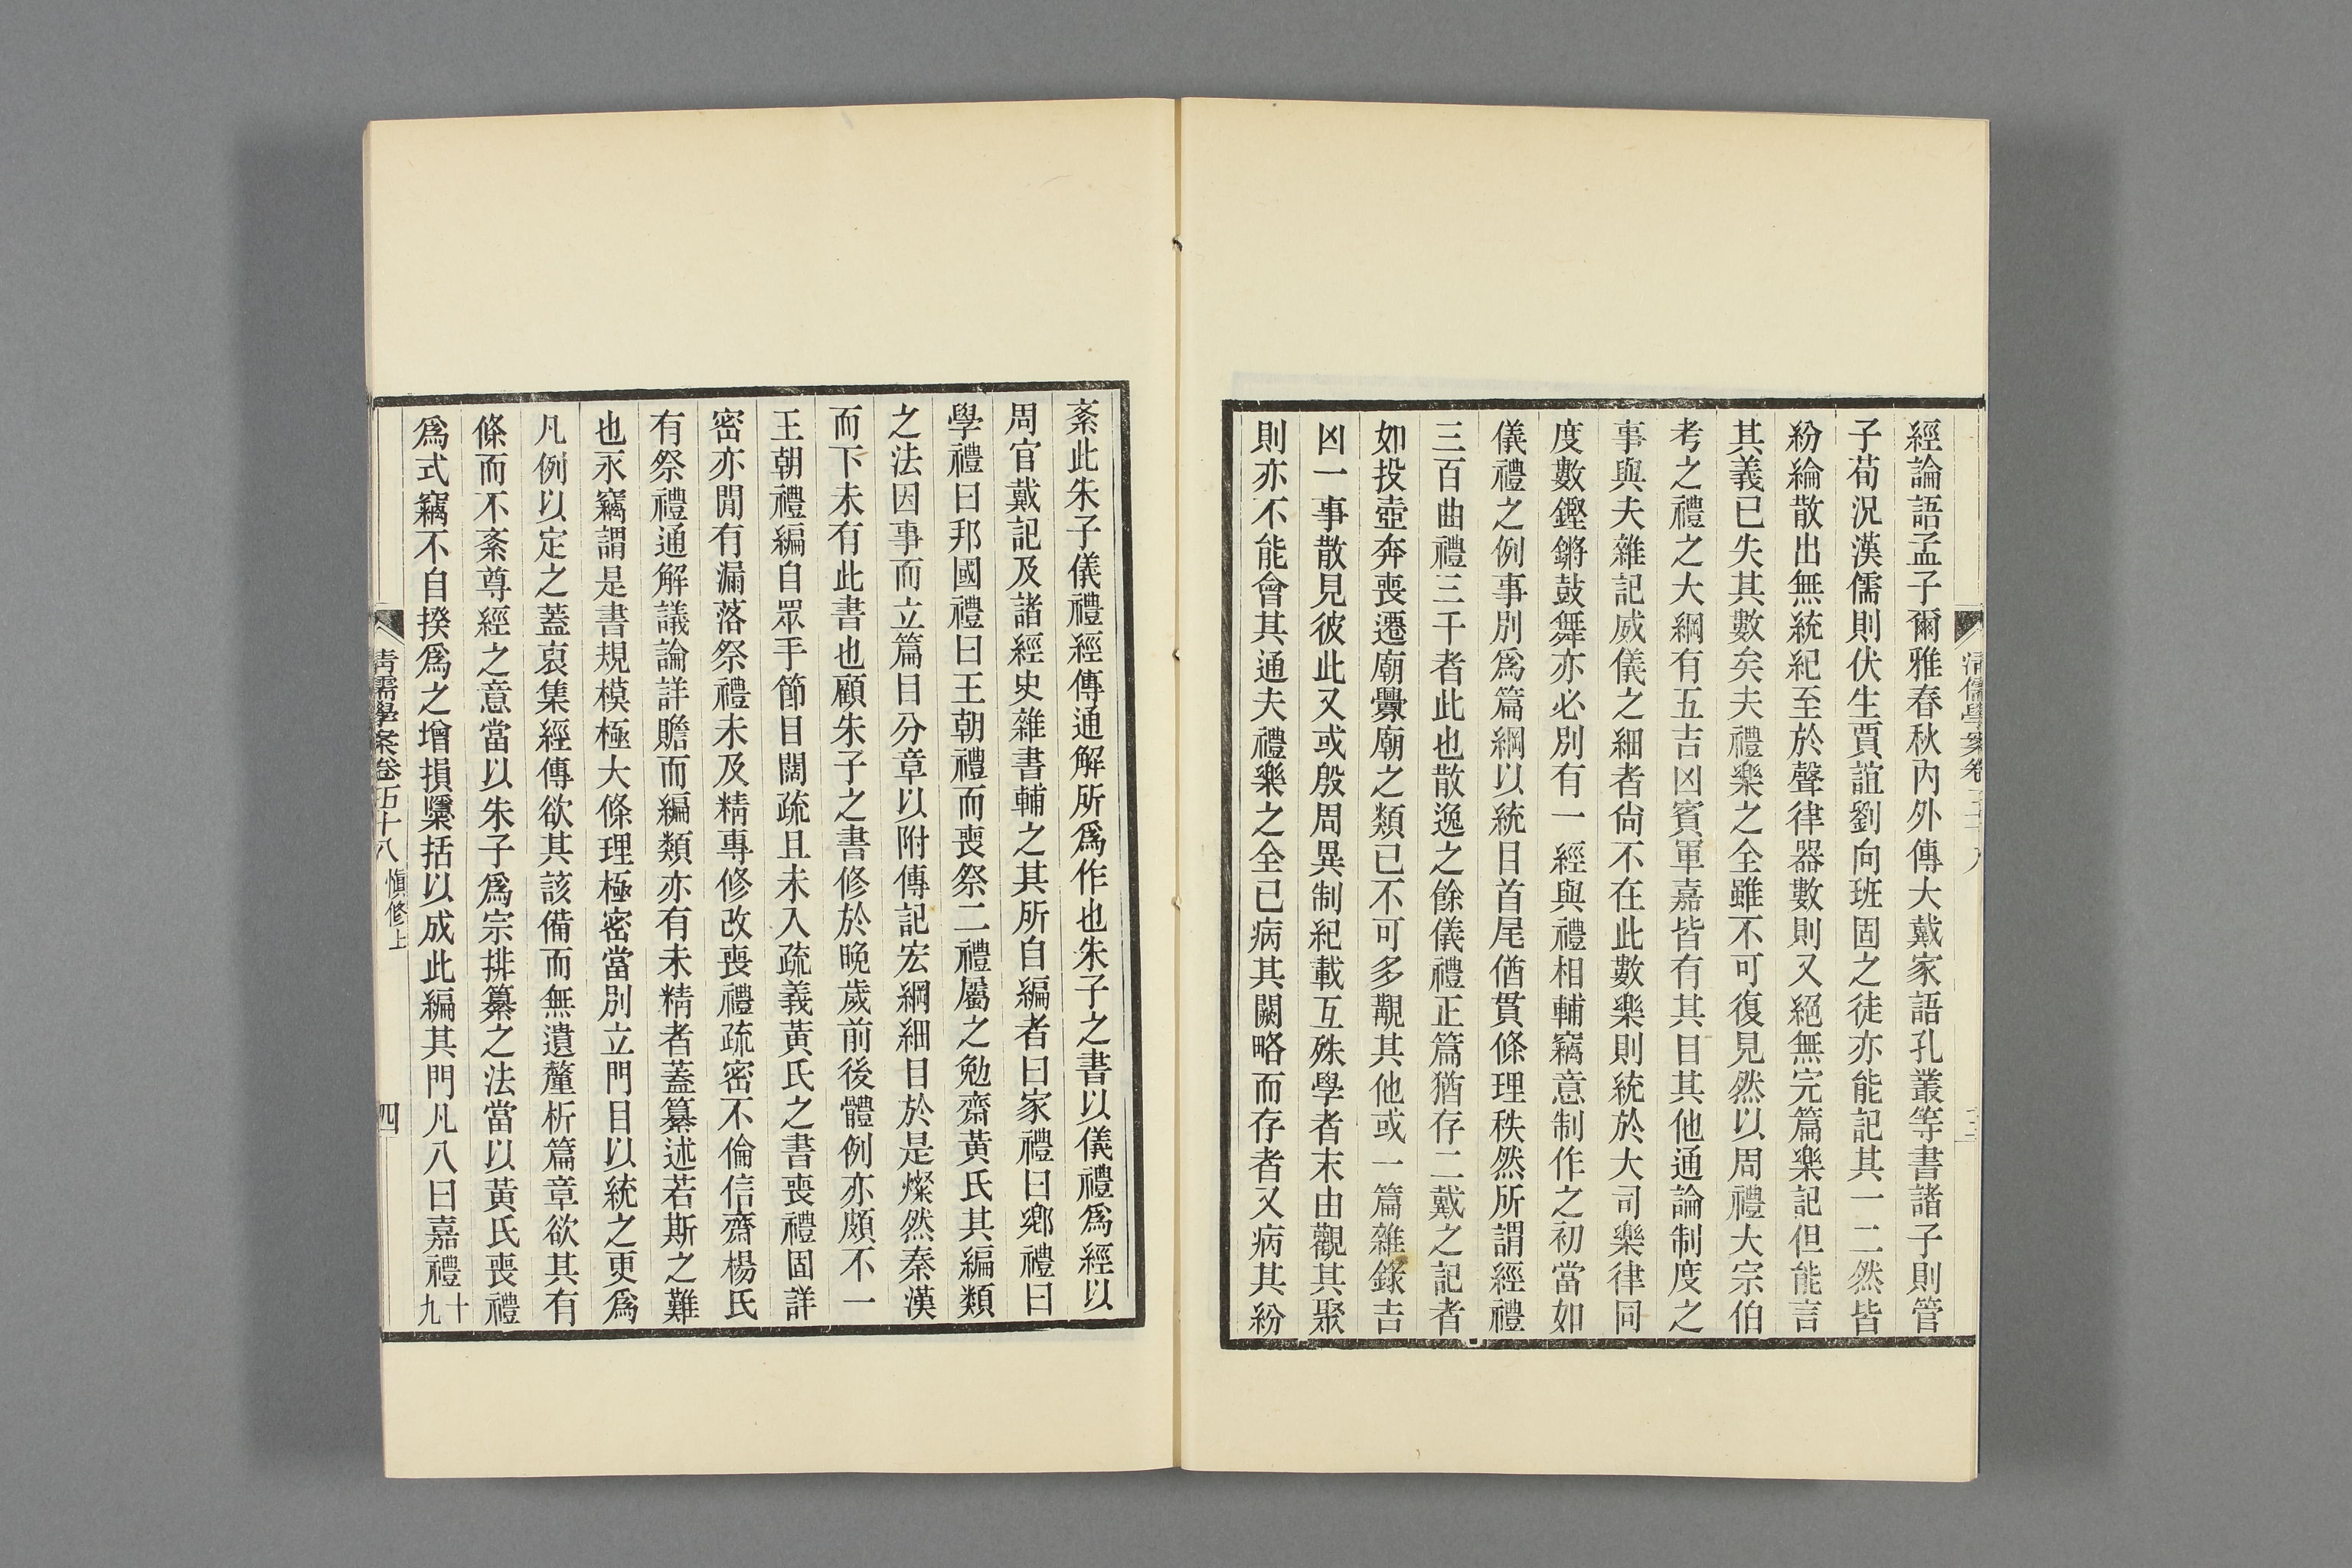 經論語孟子爾雅春秋內外傳大戴家語孔叢等書諸子則管
子荀況漢儒則伏生賈誼劉向班固之徒亦能記其一二然皆
紛綸散出無統紀至於聲律器數則又絕無完篇樂記但能言
其義已失其數矣夫禮樂之全雖不可復見然以周禮大宗伯
考之禮之大綱有五吉凶賓軍嘉皆有其目其他通論制度之
事與夫雜記威儀之細者尙不在此數樂則統於大司樂律同
度數鏗鏘鼓舞亦必別有一經與禮相輔竊意制作之初當如
儀禮之例事別爲篇綱以統目首尾偤貫條理秩然所謂經禮
三百曲禮三千者此也散逸之餘儀禮正篇猶存二戴之記者
如投壺奔喪遷廟釁廟之類已不可多覯其他或一篇雜錄吉
凶一事散見彼此又或殷周異制紀載互殊學者末由觀其聚
則亦不能會其通夫禮樂之全已病其闕略而存者又病其紛
紊此朱子儀禮經傳通解所爲作也朱子之書以儀禮爲經以
周官戴記及諸經史雜書輔之其所自編者曰家禮曰鄕禮曰
學禮曰邦國禮曰王朝禮而喪祭二禮屬之勉齋黃氏其編類
之法因事而立篇目分章以附傳記宏綱細目於是燦然秦漢
而下未有此書也顧朱子之書修於晚歲前後體例亦頗不一
王朝禮編自眾手節目闊疏且未入疏義黃氏之書喪禮固詳
密亦閒有漏落祭禮未及精專修改喪禮疏密不倫信齋楊氏
有祭禮通解議論詳贍而編類亦有未精者蓋纂述若斯之難
也永竊謂是書規模極大條理極密當別立門目以統之更爲
凡例以定之蓋裒集經傳欲其該備而無遺釐析篇章欲其有
條而不紊尊經之意當以朱子爲宗排纂之法當以黃氏喪禮
爲式竊不自揆爲之增損檃括以成此編其門凡八曰嘉禮十
九
清儒學案卷五十八 愼修上 四